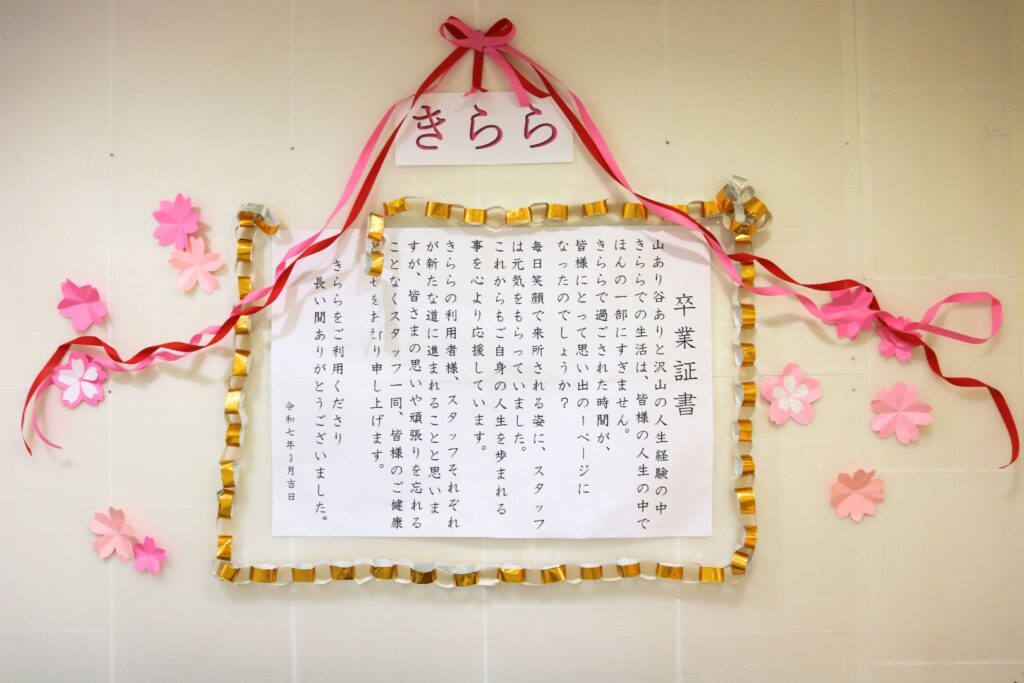 きらら
卒業証書
山あり谷ありと沢山の人生経験の中
きららでの生活は、皆様の人生の中で
ほんの一部にすぎません。
きららで過ごされた時間が、
皆様にとって思い出の一ページに
なったのでしょうか?
毎日笑顔で来所される姿に、スタッフ
は元気をもらっていました。
これからもご自身の人生を歩まれる
事を心より応援しています。
きららの利用者様、スタッフそれぞれ
が新たな道に進まれることと思いま
すが、皆さまの思いや頑張りを忘れる
ことなくスタッフ一同、皆様のご健康
り申し上げます。
きららをご利用くださり
長い間ありがとうございました。
令和七年3月吉日